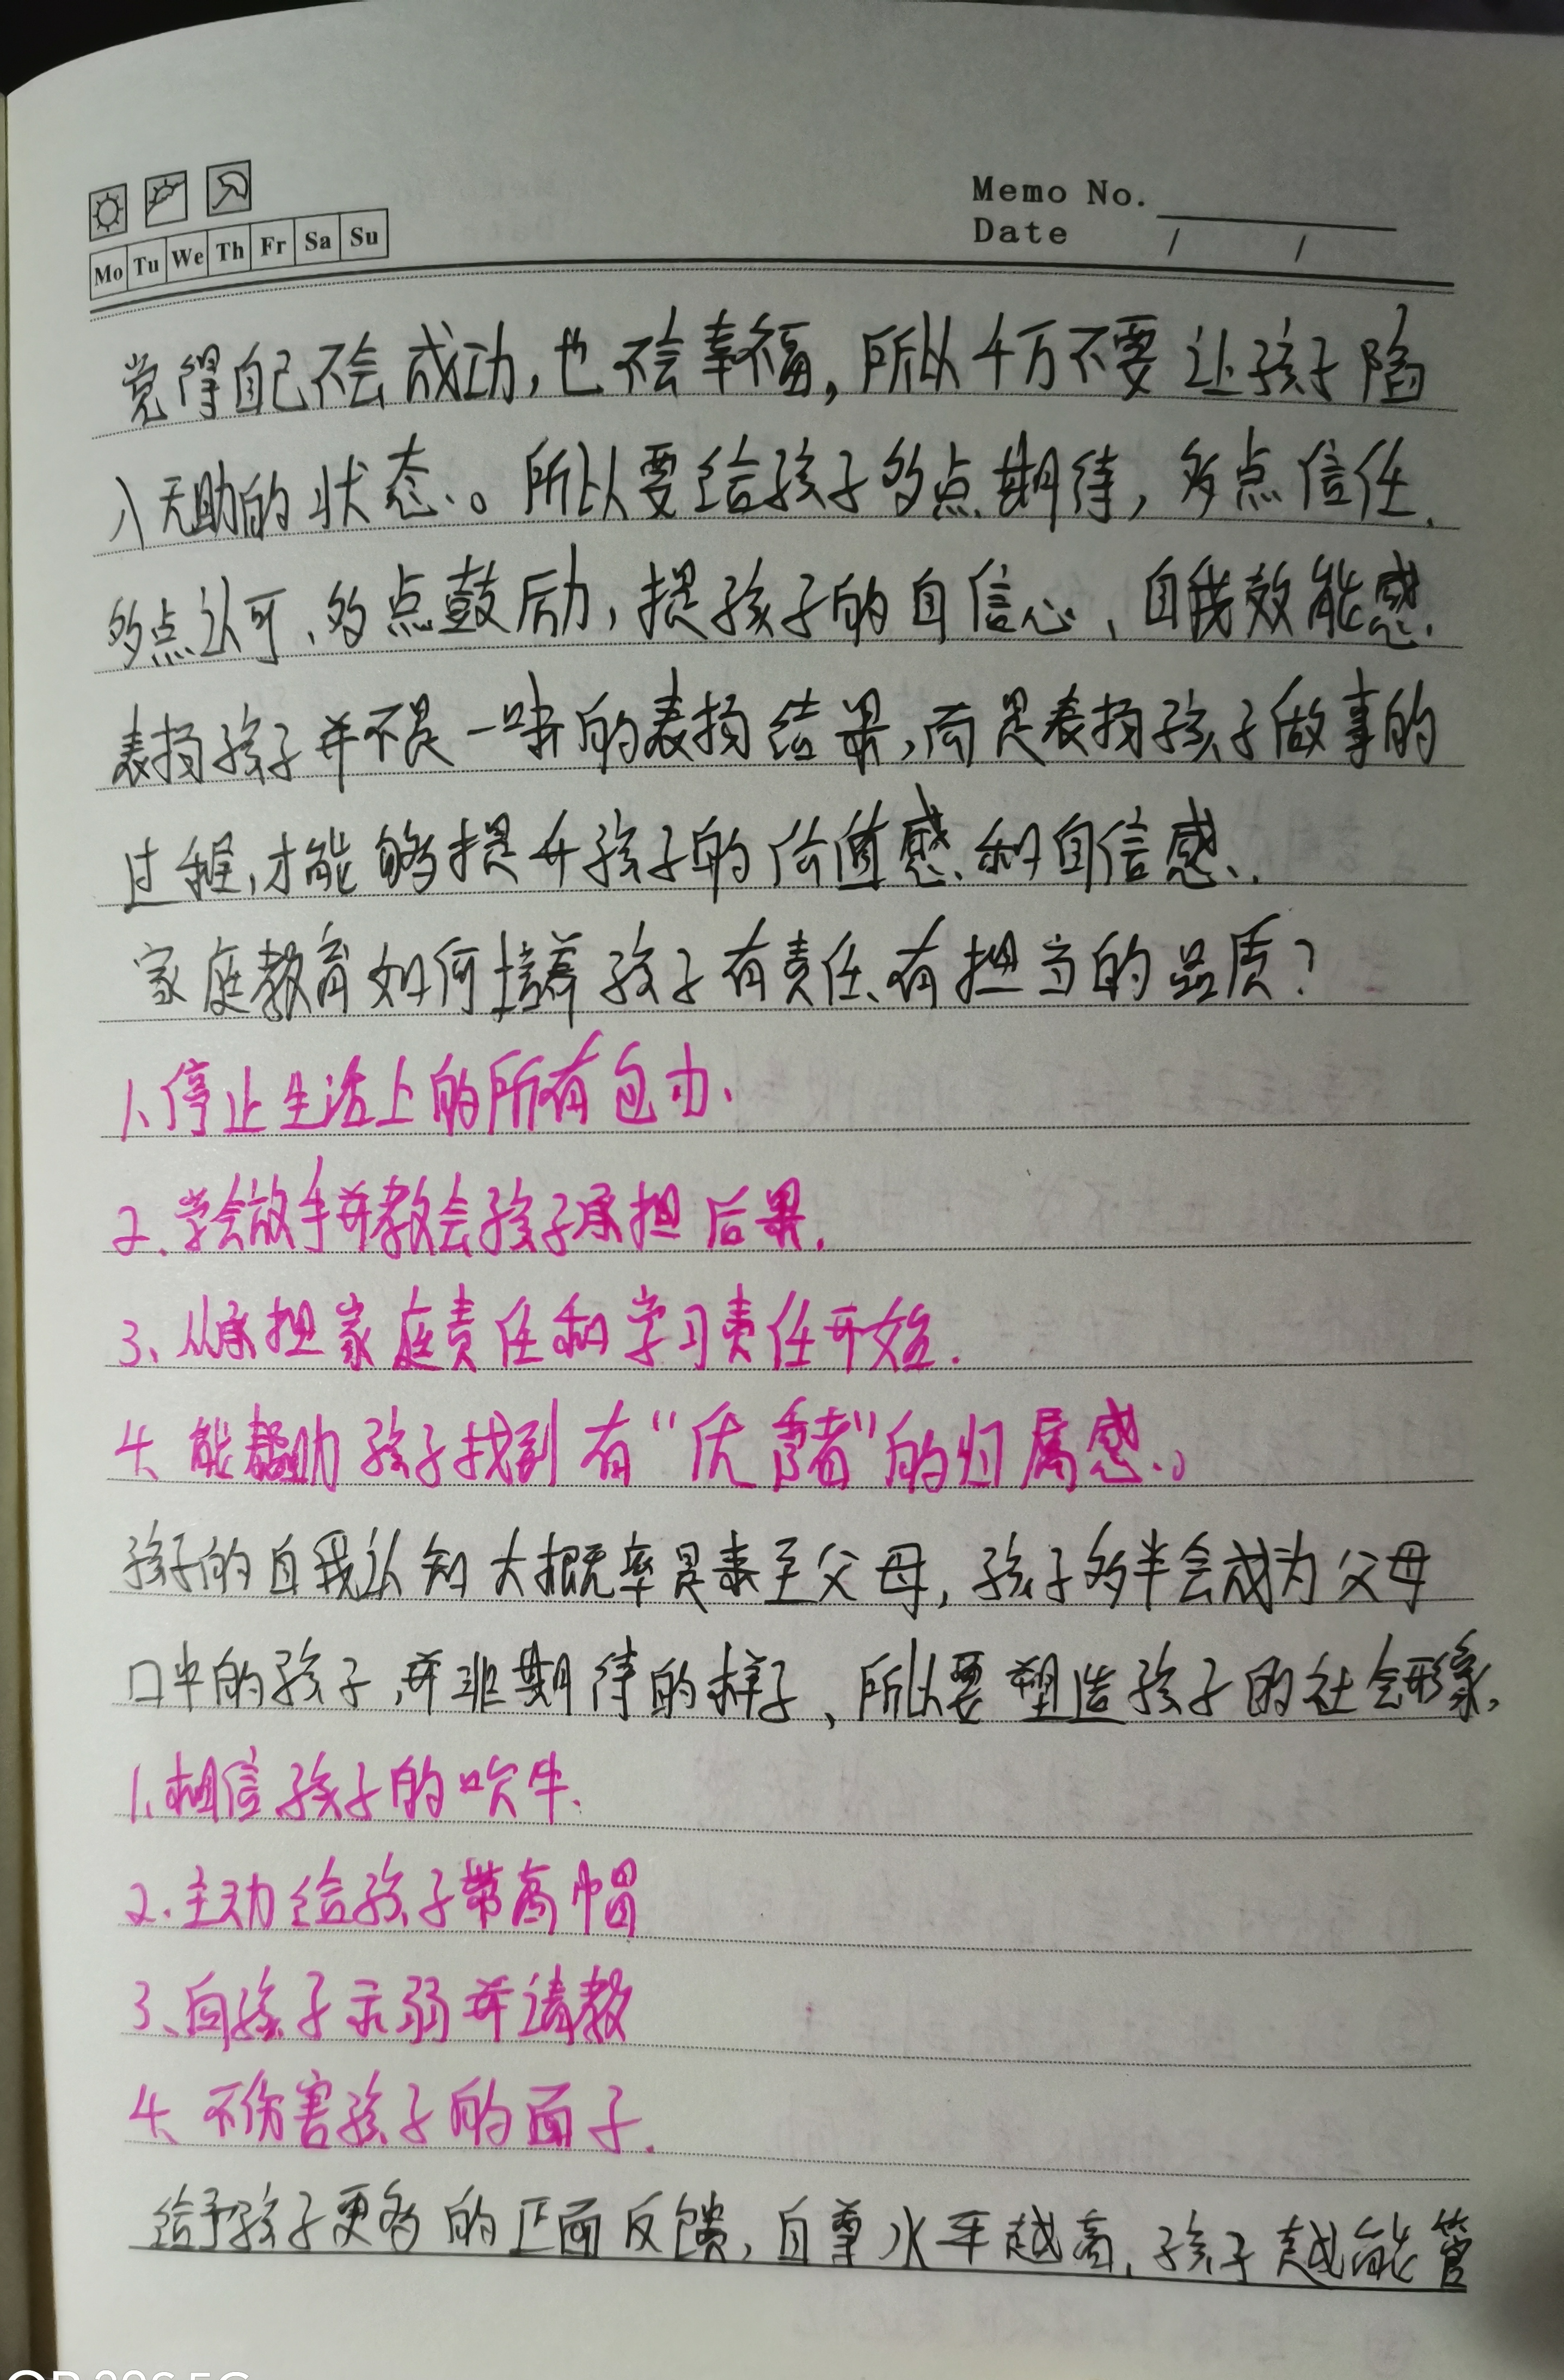 Memo No.
Mo Tu We Th Fr Sa Su
Date / /
觉得自己不会成功,也不会幸福,所以千万不要让孩子陷
入无助的状态、。所以要给孩子多点期待,多点信任、
多点认可、多点鼓励,提孩子的自信心、自我效能感.
表扬孩子并不是一味的表扬结果,而是表扬孩子做事的
过程,才能够提升孩子的价值感、和自信感、.
家庭教育如何培养孩子有责任、有担当的品质?
1、停止生活上的所有包办、
2.学会放手并教会孩子承担后果.
3、从承担家庭责任和学习责任开始.
4、能帮助孩子找到有“优秀者”的归属感、。
孩子的自我认知大概率是来至父母,孩子多半会成为父母
口中的孩子,并非期待的样子、所以要塑造孩子的社会形象,
1、相信孩子的吹牛、
2.主动给孩子带高帽
3、向孩子示弱并请教
4、不伤害孩子的面子.
给予孩子更多的正面反馈,自尊水平越高,孩子越能管